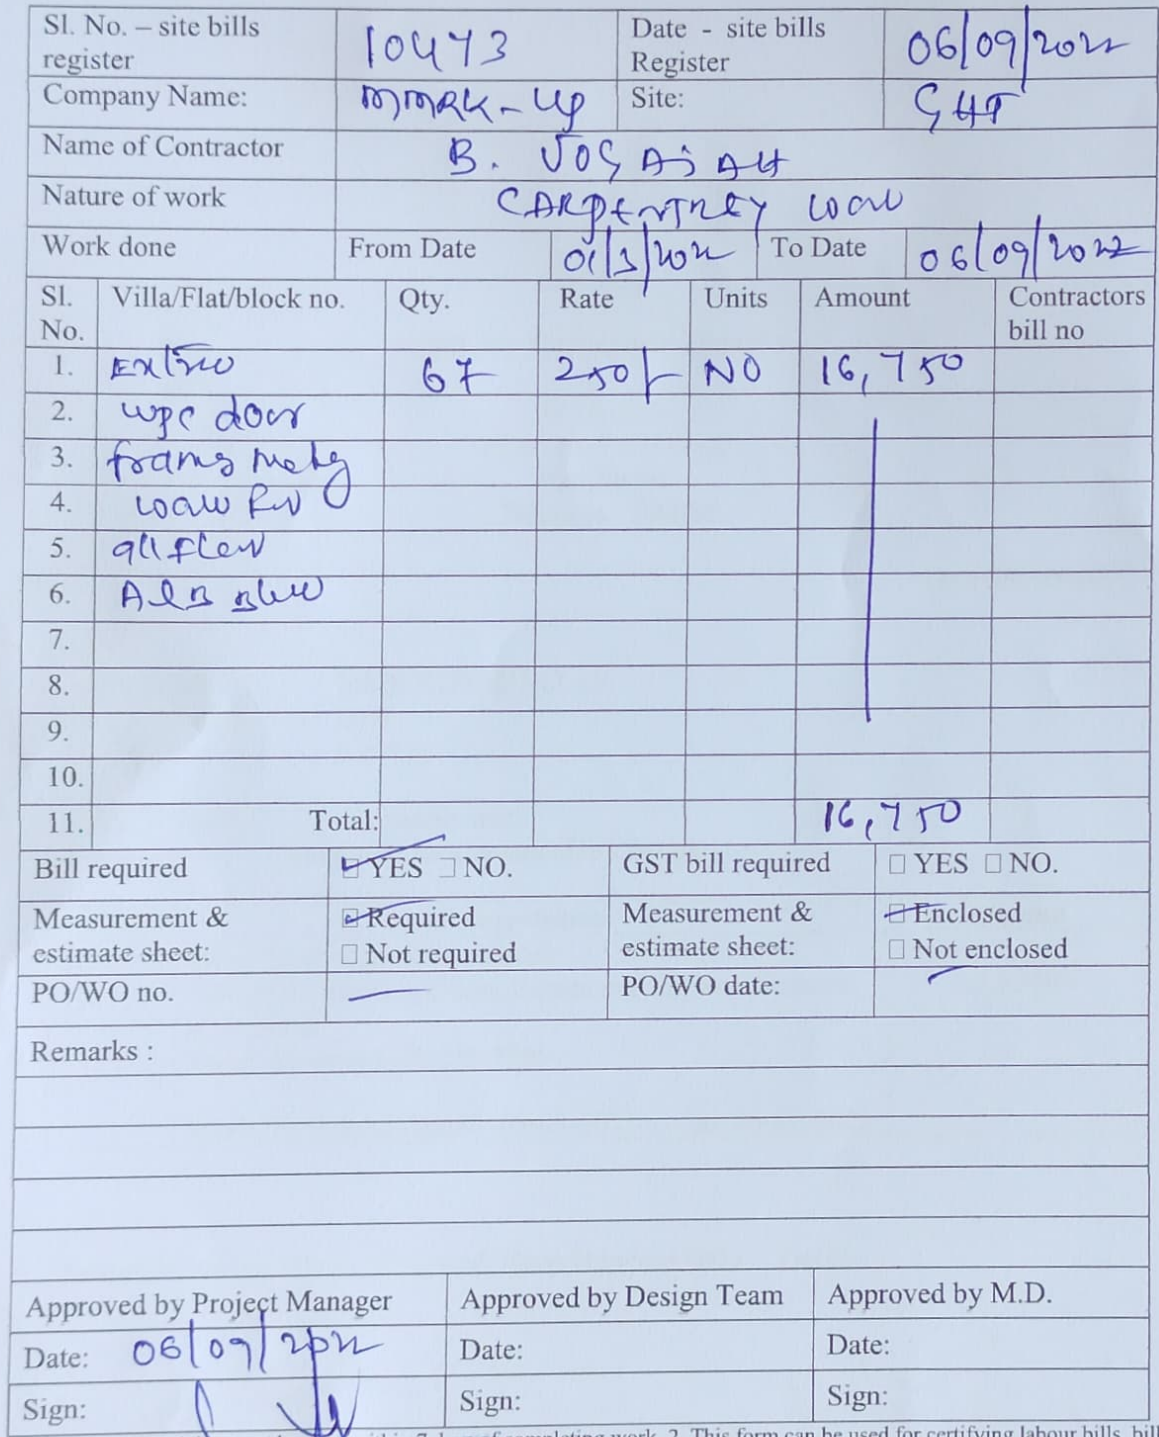 Sl. No. – site bills register 10473 Date - site bills Register 06/09/2022
Company Name: MMRK-Up Site: GHT
Name of Contractor B. JOGAiAH
Nature of work CARPENTREY work
Work done From Date 01/3/2022 To Date 06/09/2022
Sl. No. Villa/Flat/block no. Qty. Rate Units Amount Contractors bill no
1. Extra 67 250/- NO 16,750
2. wpc door
3. frams
4. work
5. all
6. A
7.
8.
9.
10.
11. Total: 16,750
Bill required YES NO. GST bill required YES NO.
Measurement & estimate sheet: Required Not required Measurement & estimate sheet: Enclosed Not enclosed
PO/WO no. PO/WO date:
Remarks :
Approved by Project Manager Approved by Design Team Approved by M.D.
Date: 06/09/2022 Date: Date:
Sign: Sign: Sign:
2. This form can be used for certifying labour bills, bill